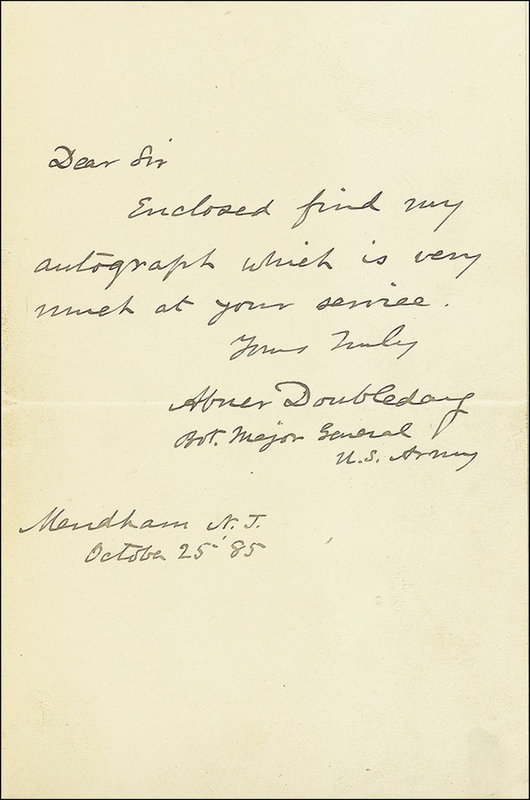 Dear Sir
Enclosed find my
autograph which is very
much at your service.
Yours Truly
Abner Doubleday
Bvt. Major General
U.S. Army
Mendham N.J.
October 25 '85